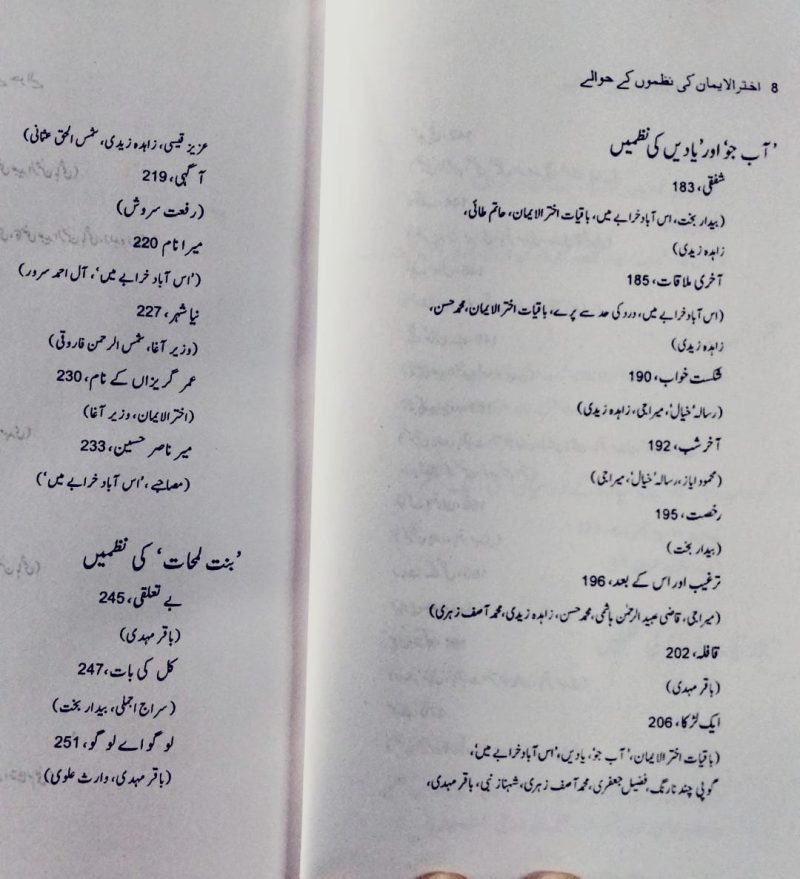 8 اختر الایمان کی نظموں کے حوالے
'آب جو' اور 'یادیں' کی نظمیں
شفقی، 183
(بیدار بخت، اس آباد خرابے میں، باقیات اختر الایمان، حاتم طائی،
زاہدہ زیدی)
آخری ملاقات، 185
(اس آباد خرابے میں، درد کی حد سے پرے، باقیات اختر الایمان، محمد حسن،
زاہدہ زیدی)
شکست خواب، 190
(رسالہ 'خیال'، میراجی، زاہدہ زیدی)
آخر شب، 192
(محمود ایاز، رسالہ 'خیال'، میراجی)
رخصت، 195
(بیدار بخت)
ترغیب اور اس کے بعد، 196
(میراجی، قاضی عبید الرحمٰن ہاشمی، محمد حسن، زاہدہ زیدی، محمد آصف زہری)
قافلہ، 202
(باقر مہدی)
ایک لڑکا، 206
(باقیات اختر الایمان، 'آب جو'، یادیں، 'اس آباد خرابے میں'،
گوپی چند نارنگ، فضیل جعفری، محمد آصف زہری، شہناز نبی، باقر مہدی،
عزیز قیسی، زاہدہ زیدی، شمس الحق عثمانی)
آگہی، 219
(رفعت سروش)
میرا نام 220
('اس آباد خرابے میں'، آل احمد سرور)
نیا شہر، 227
(وزیر آغا، شمس الرحمن فاروقی)
عمر گریزاں کے نام، 230
(اختر الایمان، وزیر آغا)
میر ناصر حسین، 233
(مصاحبے، 'اس آباد خرابے میں')
'بنت لمحات' کی نظمیں
بے تعلقی، 245
(باقر مہدی)
کل کی بات، 247
(سراج اجملی، بیدار بخت)
لوگو اے لوگو، 251
(باقر مہدی، وارث علوی)